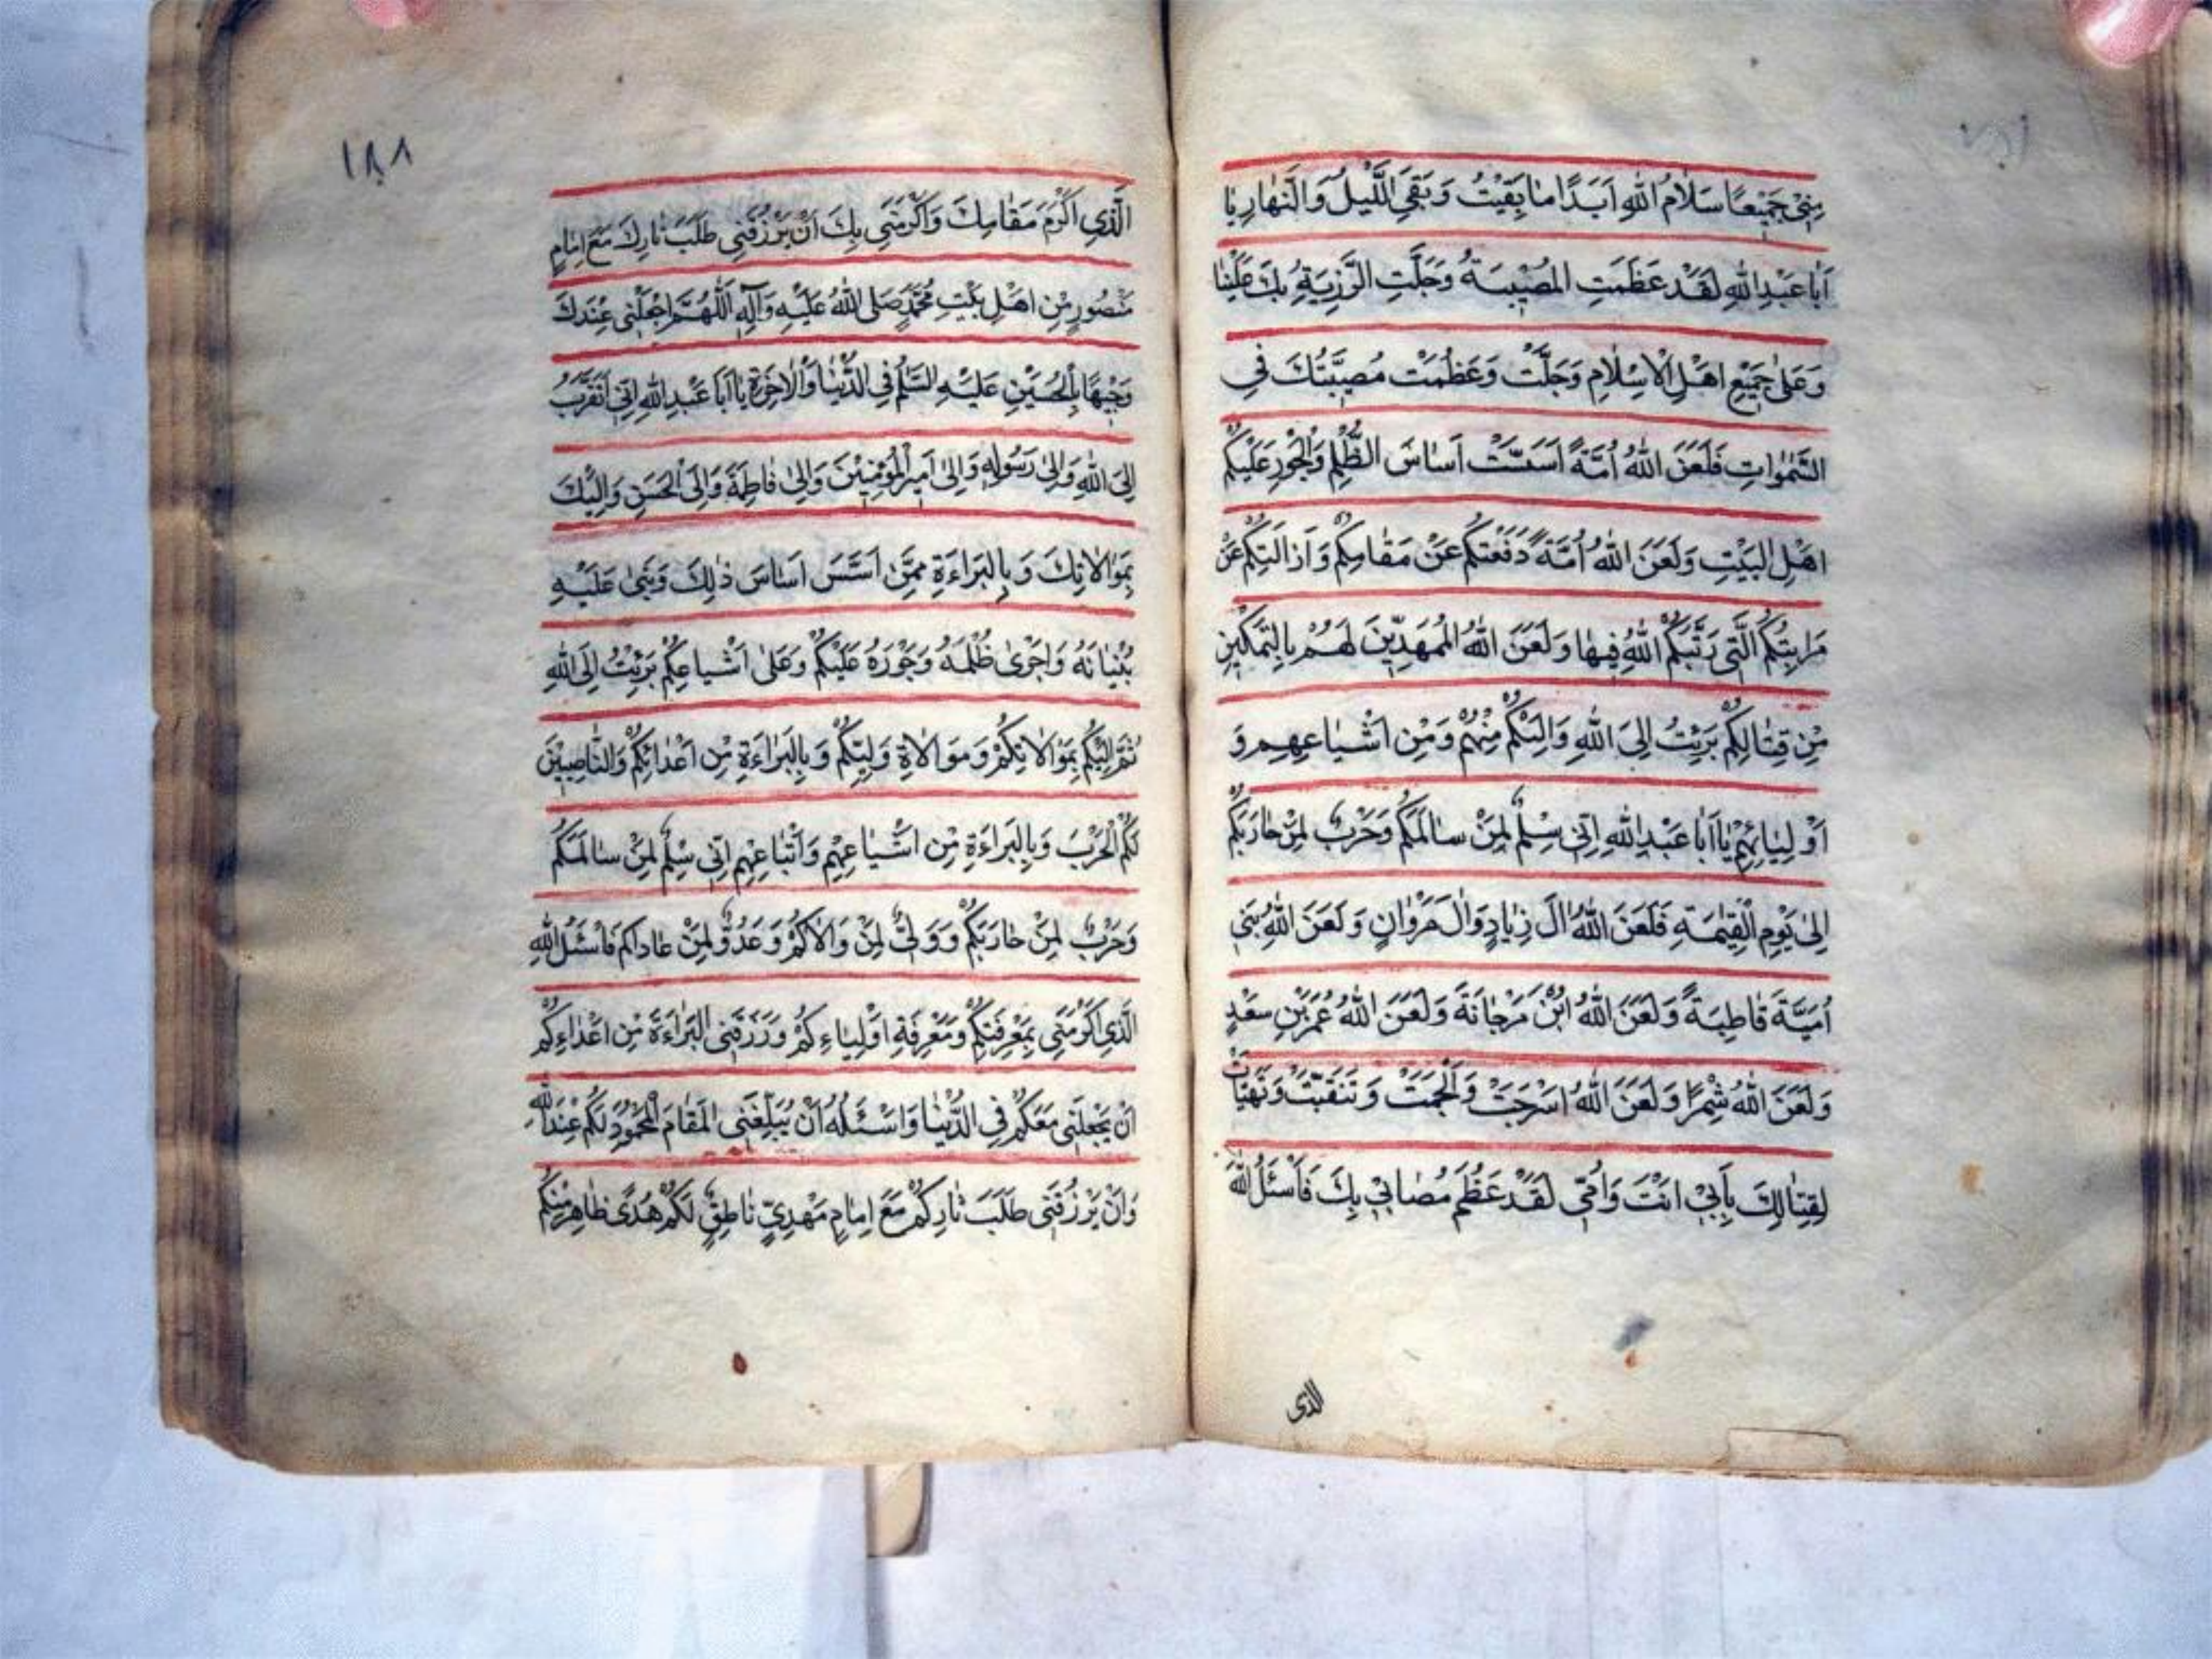 مِنّى جَمِيْعًا سَلَامُ اللهِ اَبَدًا مَا بَقِيْتُ وَ بَقِىَ اللَّيْلُ وَ النَّهَارِ يَا
اَبَا عَبْدِ اللهِ لَقَدْ عَظَمَتِ المُصِيْبَةُ وَجَلَّتِ الرَّزِيَةُ بِكَ عَلَيْنَا
وَعَلىٰ جَمِيْعِ اهْلِ الْاِسْلَامِ وَجَلَّتْ وَعَظُمَتْ مُصِيْبَتُكَ فِى
السَّمٰوَاتِ فَلَعَنَ اللهُ اُمَّةً اَسَسَتْ اَسَاسَ الظُّلْمِ وَالْجَوْرِ عَلَيْكُمْ
اهْلِ البَيْتِ وَلَعَنَ اللهُ اُمَّةً دَفَعَتْكُمْ عَنْ مَقَامِكُمْ وَ اَزَالَتْكُمْ عَنْ
مَرَاتِبِكُمُ الَّتِى رَتَّبَكُمُ اللهُ فِيهَا وَ لَعَنَ اللهُ المُمَهِدِّيْنَ لَهُمْ بِالتَمْكِيْنِ
مِنْ قِتَالِكُمْ بَرِئْتُ اِلىَ اللهِ وَ اِلَيْكُمْ مِنْهُمْ وَ مِنْ اَشْيَاعِهِم وَ
اَوْلِيَائِهِمْ يَا اَبَا عَبْدِ اللهِ اِنّى سِلْمٌ لِمَنْ سَالَمَكُمْ وَحَرْبٌ لِمَنْ حَارَبَكُمْ
اِلىٰ يَوْمِ الْقِيٰمَةِ فَلَعَنَ اللهُ اٰلَ زِيَادٍ وَاٰلَ مَرْوَانٍ وَ لَعَنَ اللهُ بَنِى
اُمَيَّةَ قَاطِبَةً وَ لَعَنَ اللهُ ابْنَ مَرْجَانَةَ وَ لَعَنَ اللهُ عُمَرَ بْنِ سَعْدٍ
وَ لَعَنَ اللهُ شِمْرًا وَ لَعَنَ اللهُ اَسْرَجَتْ وَ اَلْجَمَتْ وَ تَنَقَبَتْ وَ تَهَيَّاَتْ
لِقِتَالِكَ بِاَبِىْ انْتَ وَ اُمّى لَقَدْ عَظُمَ مُصَابِى بِكَ فَاَسْئَلُ اللهَ
الذى
١٨٨
الَّذِى اَكْرَمَ مَقَامِكَ وَ اَكْرَمَنِى بِكَ اَنْ يَرْزُقَنِى طَلَبَ ثَارِكَ مَعَ اِمَامٍ
مَنْصُورٍ مِنْ اهْلِ بَيْتِ مُحَمَّدٍ صَلى اللهُ عَلَيْهِ وَ آلِهِ اَللّٰهُمَّ اجْعَلْنِى عِنْدَكَ
وَجِيْهًا بِالْحُسَيْنِ عَلَيْهِ السَّلَمُ فِى الدُّنْيَا وَ الْاٰخِرَةِ يَا اَبَا عَبْدِ اللهِ اِنّى اَتَقَرَّبُ
اِلىَ اللهِ وَ اِلىٰ رَسُولِهِ وَ اِلىٰ اَمِيْرِالْمُؤْمِنِيْنَ وَ اِلىٰ فَاطِمَةَ وَ اِلىَ الْحَسَنِ وَ اِلَيْكَ
بِمَوَالَاتِكَ وَ بِالْبَرَاءَةِ مِمَّنْ اَسَّسَ اَسَاسَ ذٰلِكَ وَ بَنىٰ عَلَيْهِ
بُنْيَانَهُ وَ اَجْرىٰ ظُلْمَهُ وَ جَوْرَهُ عَلَيْكُمْ وَعَلىٰ اَشْيَاعِكُمْ بَرِئْتُ اِلَى اللهِ
ثُمَّ اِلَيْكُمْ بِمَوَالَاتِكُمْ وَ مَوَالَاةِ وَلِيّكُمْ وَ بِالْبَرَاءَةِ مِنْ اَعْدَائِكُمْ وَ النَّاصِبِيْنَ
لَكُمُ الْحَرْبَ وَ بِالبَرَاءَةِ مِنْ اَشْيَاعِهِمْ وَ اَتْبَاعِهِمْ اِنّى سِلْمٌ لِمَنْ سَالَمَكُمْ
وَ حَرْبٌ لِمَنْ حَارَبَكُمْ وَ وَلِىٌّ لِمَنْ وَالَاكُمْ وَ عَدُوٌّ لِمَنْ عَادَاكُم فَاَسْئَلُ اللهَ
الَّذِى اَكْرَمَنِى بِمَعْرِفَتِكُمْ وَ مَعْرِفَةِ اَوْلِيَاءِكُمْ وَ رَزَقَنِى البَرَاءَةَ مِنْ اَعْدَاءِكُمْ
اَنْ يَجْعَلَنِى مَعَكُمْ فِى الدُّنْيَا وَ اَسْئَلُهُ اَنْ يُبَلِّغَنِى الْمَقَامَ الْمَحْمُوْدَ لَكُمْ عِنْدَ اللهِ
وَ اَنْ يَرْزُقَنِى طَلَبَ ثَارِكُمْ مَعَ اِمَامٍ مَهْدِىّ نَاطِقٍ لَكُمْ هُدًى ظَاهِرٍ مِنْكُمْ